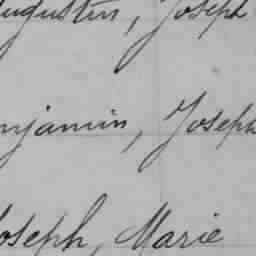 Augustin, Joseph
Benjamin, Joseph
Joseph, Marie